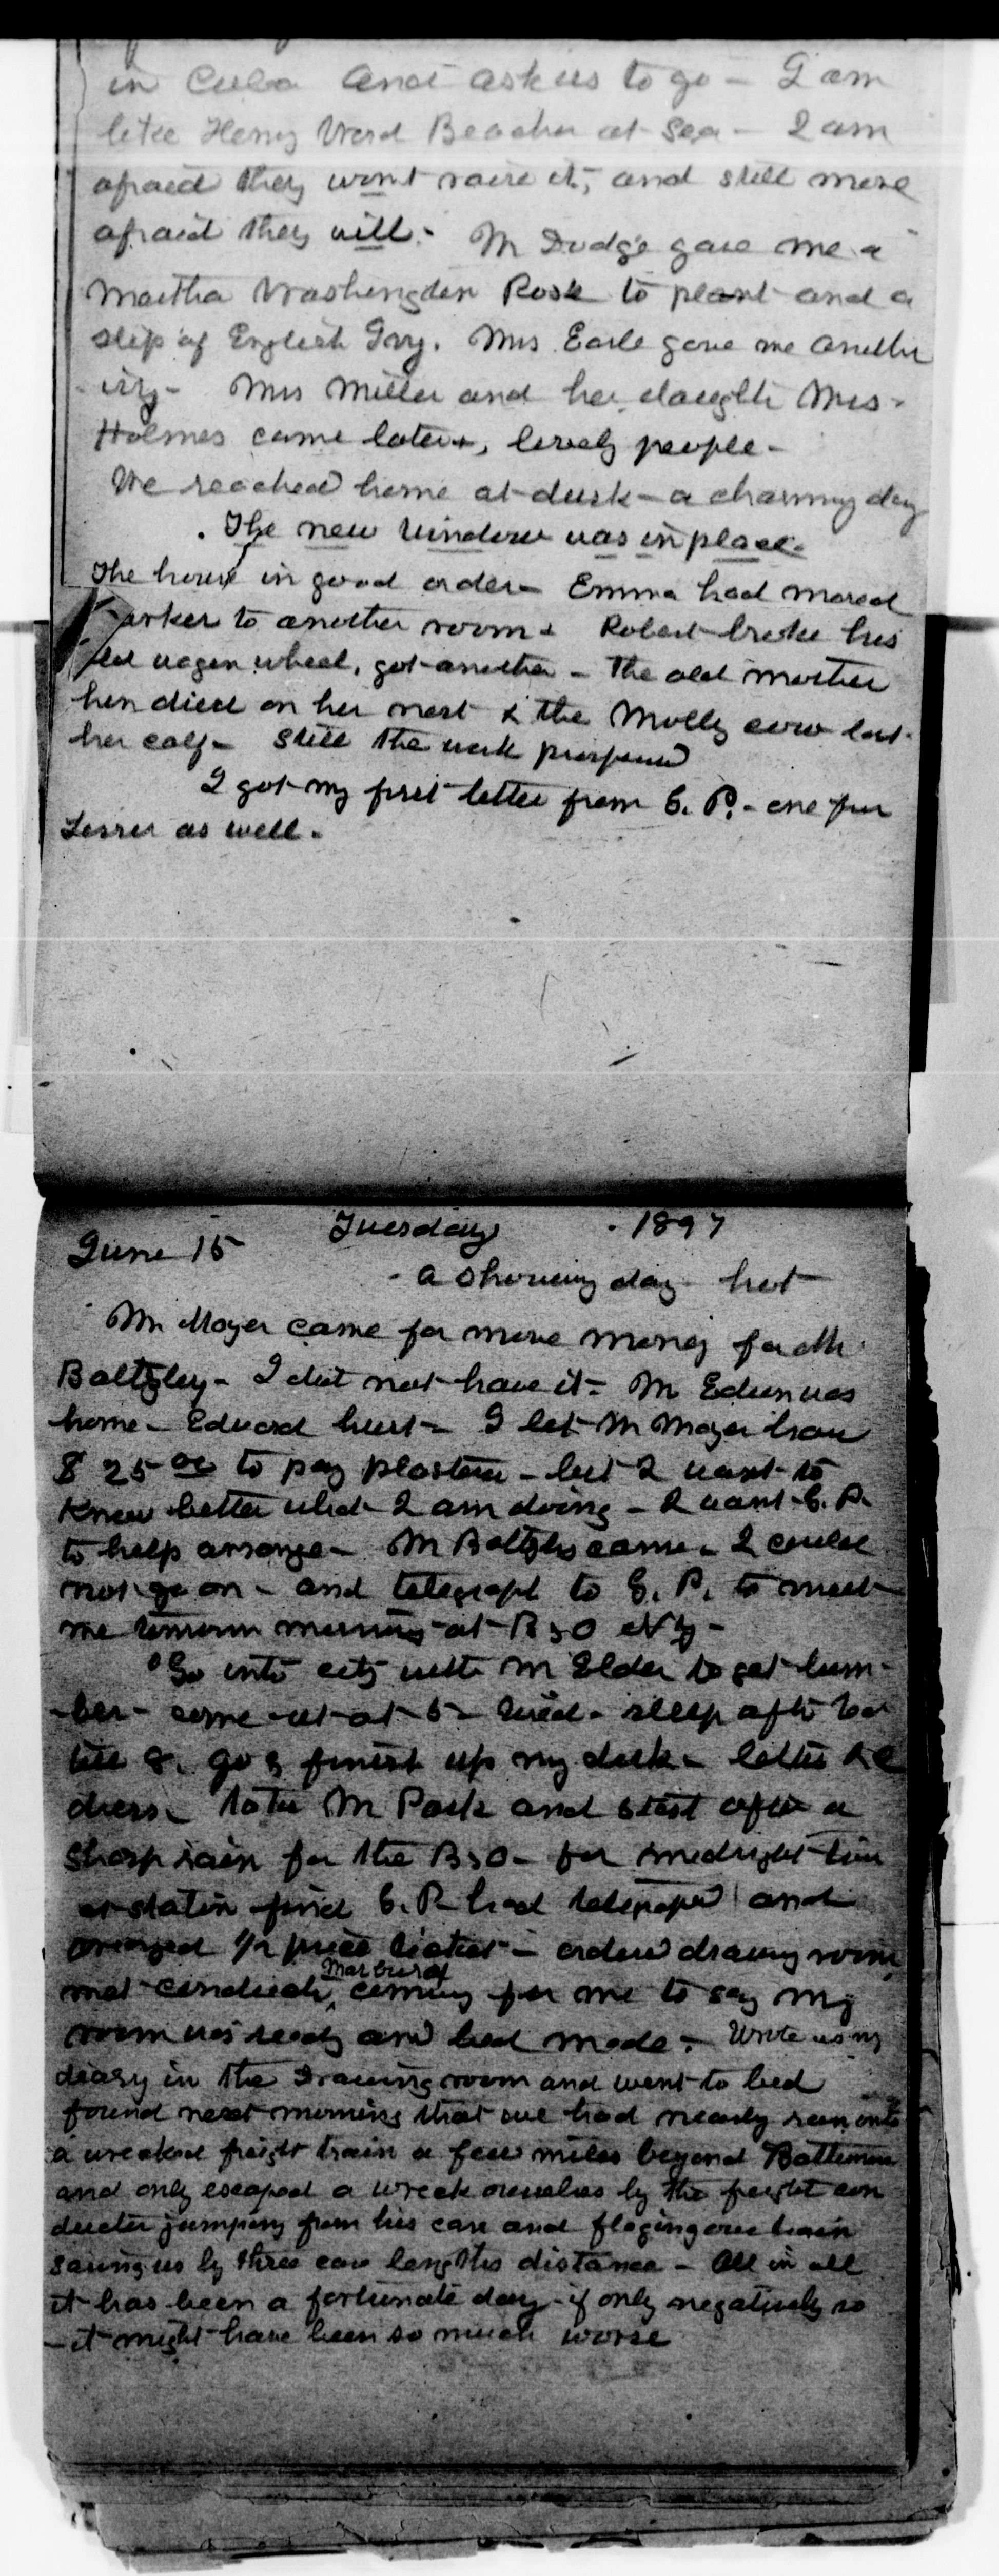 in Cuba and ask us to go - I am
like Henry Ward Beacher at sea - I am
afraid they wont raise it, and still more
afraid they will. - Mr Dodge gave me a
Martha Washington Rose to plant and a
slip of English Ivy. Mrs Earle gave me another
ivy - Mrs Miller and her daughter Mrs -
Holmes came later, lovely people -
We reached home at dusk - a charming day
. The new window was in place.
The house in good order - Emma had moved
Parker to another room & Robert broke his
old wagon wheel, got another - The old mother
hen died on her nest & the Molly cow lost
her calf - Still the work prospered
I got my first letter from C. P. - one for
as well -
June 15 Tuesday . 1897
- a showery day hot
Mr Moyer came for more money for Mr
Baltzley - I did not have it - Mr was
home - Edward hurt - I let Mr Moyer have
$ 25 00 to pay plasterer - but I want to
know better what I am doing - I want C. P.
to help arrange - Mr Baltzley came - I could
not go on - and telegraph to C. P. to meet
me tomorrow morning at B & O NY -
Go into city with Mr Elder to get lum-
-ber - come out at 5 - tired - sleep after tea
till 8. go & finish up my desk - letters &c
dress - take Mr Park and start after a
sharp rain for the B & O - for midnight train
at station find C. P. had telegraphed and
arranged 1/2 price ticket - ordered drawing room
met conductor, Marburg coming for me to say my
room was ready and bed made. - Write up my
diary in the Drawing room and went to bed
found next morning that we had nearly run onto
a wrecked freight train a few miles beyond Baltimore
and only escaped a wreck ourselves by the freight con
ductor jumping from his car and flaging our train
saving us by three car lengths distance - All in all
it has been a fortunate day - if only negatively so
- it might have been so much worse